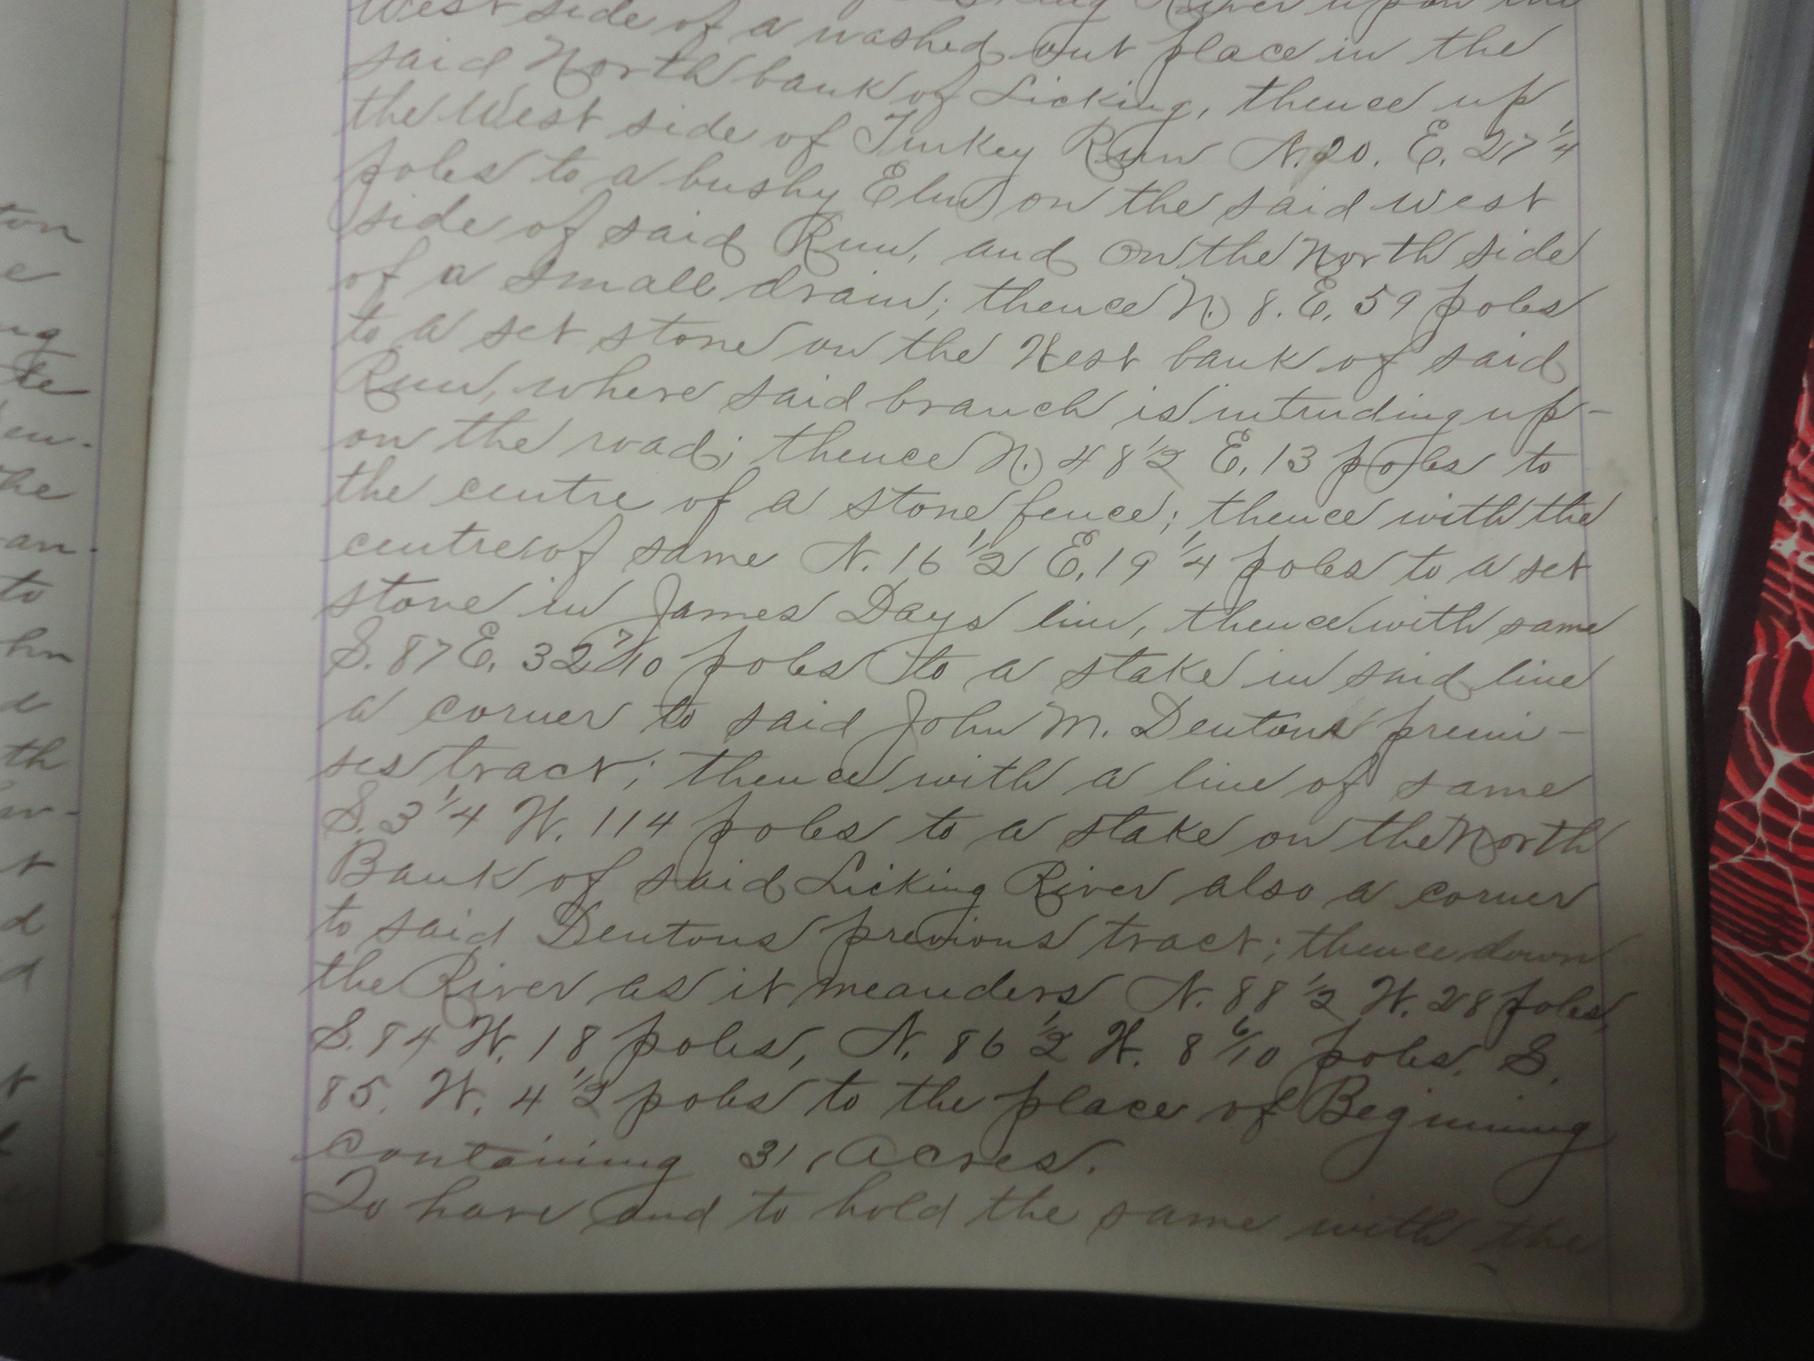 West side of a washed out place in the
said North bank of Licking, thence up
the West side of Turkey Run N. 20. E. 27 1/4
poles to a bushy Elm on the said west
side of said Run, and on the North side
of a small drain; thence N. 8. E. 59 poles
to a set stone on the West bank of said
Run, where said branch is intruding up-
on the road; thence N. 48 1/2 E. 13 poles to
the centre of a stone fence; thence with the
centre of same N. 16 1/2 E. 19 1/4 poles to a set
stone in James Days line, thence with same
S. 87 E. 32 7/10 poles to a stake in said line
a corner to said John M. Dentons premi-
ses tract; thence with a line of same
S. 3 1/4 W. 114 poles to a stake on the North
Bank of said Licking River also a corner
to said Dentons previous tract; thence down
the River as it meanders N. 88 1/2 W. 28 poles,
S. 84 W. 18 poles, N. 86 1/2 W. 8 6/10 poles. S.
85. W. 4 1/2 poles to the place of Beginning
containing 31, Acres.
To have and to hold the same with the